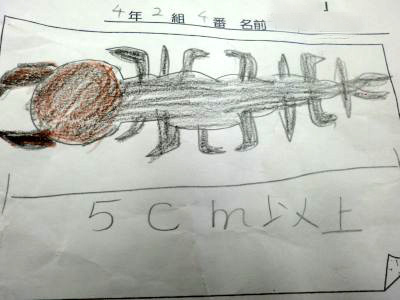 」
4年2組4番 名前
5cm以上